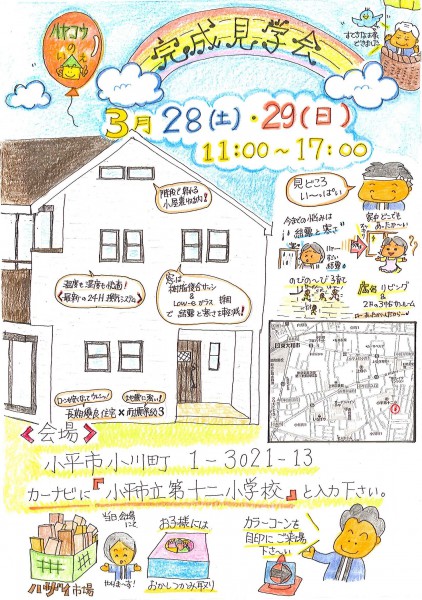 ハヤコウ
の
いえ
完成見学会
すてきなお家
できました
3月28(土)・29(日)
11:00～17:00
階段で昇れる
小屋裏収納!
見どころ
い～っぱい
今までの悩みは
結露と寒さ
家中どこでも
あったか～い
温度も湿度も快適!
最新の24H換気システム
窓は
樹脂複合サッシ
&
Low-Eガラス
で結露と寒さを軽減!
のびの～び子育て
LDK
2Fの
地震に強い!
長期優良住宅×耐震等級3
小平市
<会場>
小平市小川町 1-3021-13
カーナビに『小平市立第十二小学校』と入力下さい。
当日会場
にて
やりま～す!
ハザイ市場
お子様には
おかしつかみ取り
カラーコーンを
目印にご来場
下さ～い